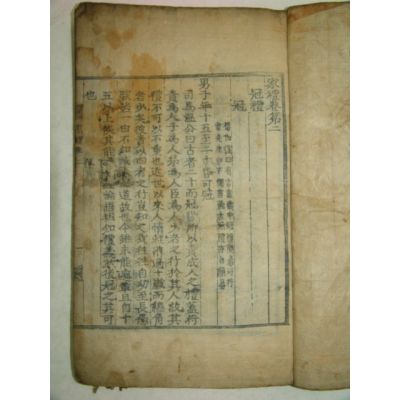 家禮卷第二
冠禮
冠
男子年十五至二十皆可冠
司馬溫公曰古者二十而冠皆所以責成人之禮蓋將
責爲人子爲人弟爲人臣爲人少者之行於其人故其
禮不可以不重也近世以來人情輕薄過十歲而總角
者少矣彼責以四者之行豈知之哉往往自幼至長愚
騃若一由不知成人之道故也今雖未能遽革且自十
五以上俟其能 論語粗知禮義然後冠之其可
也